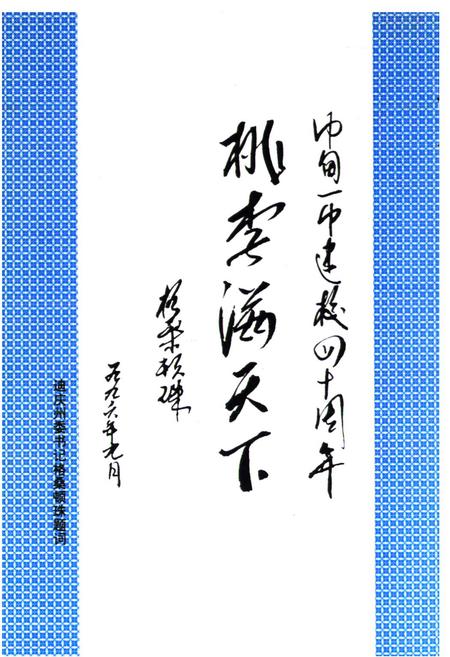 中甸一中建校四十周年
桃李满天下
格桑顿珠
一九九六年九月
迪庆州委书记格桑顿珠题词